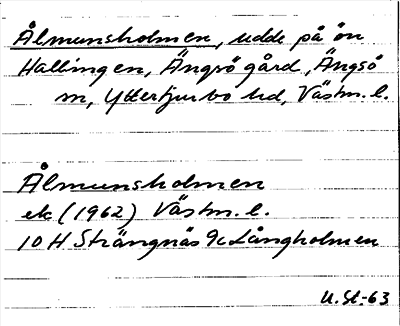 Ålmunsholmen, udde på ön
Hallingen, Ängsö gård, Ängsö
sn, Yttertjurbo hd, Västm. l.
Ålmunsholmen
ek (1962) Västm. l.
10 H Strängnäs 9c Långholmen
U.St.-63